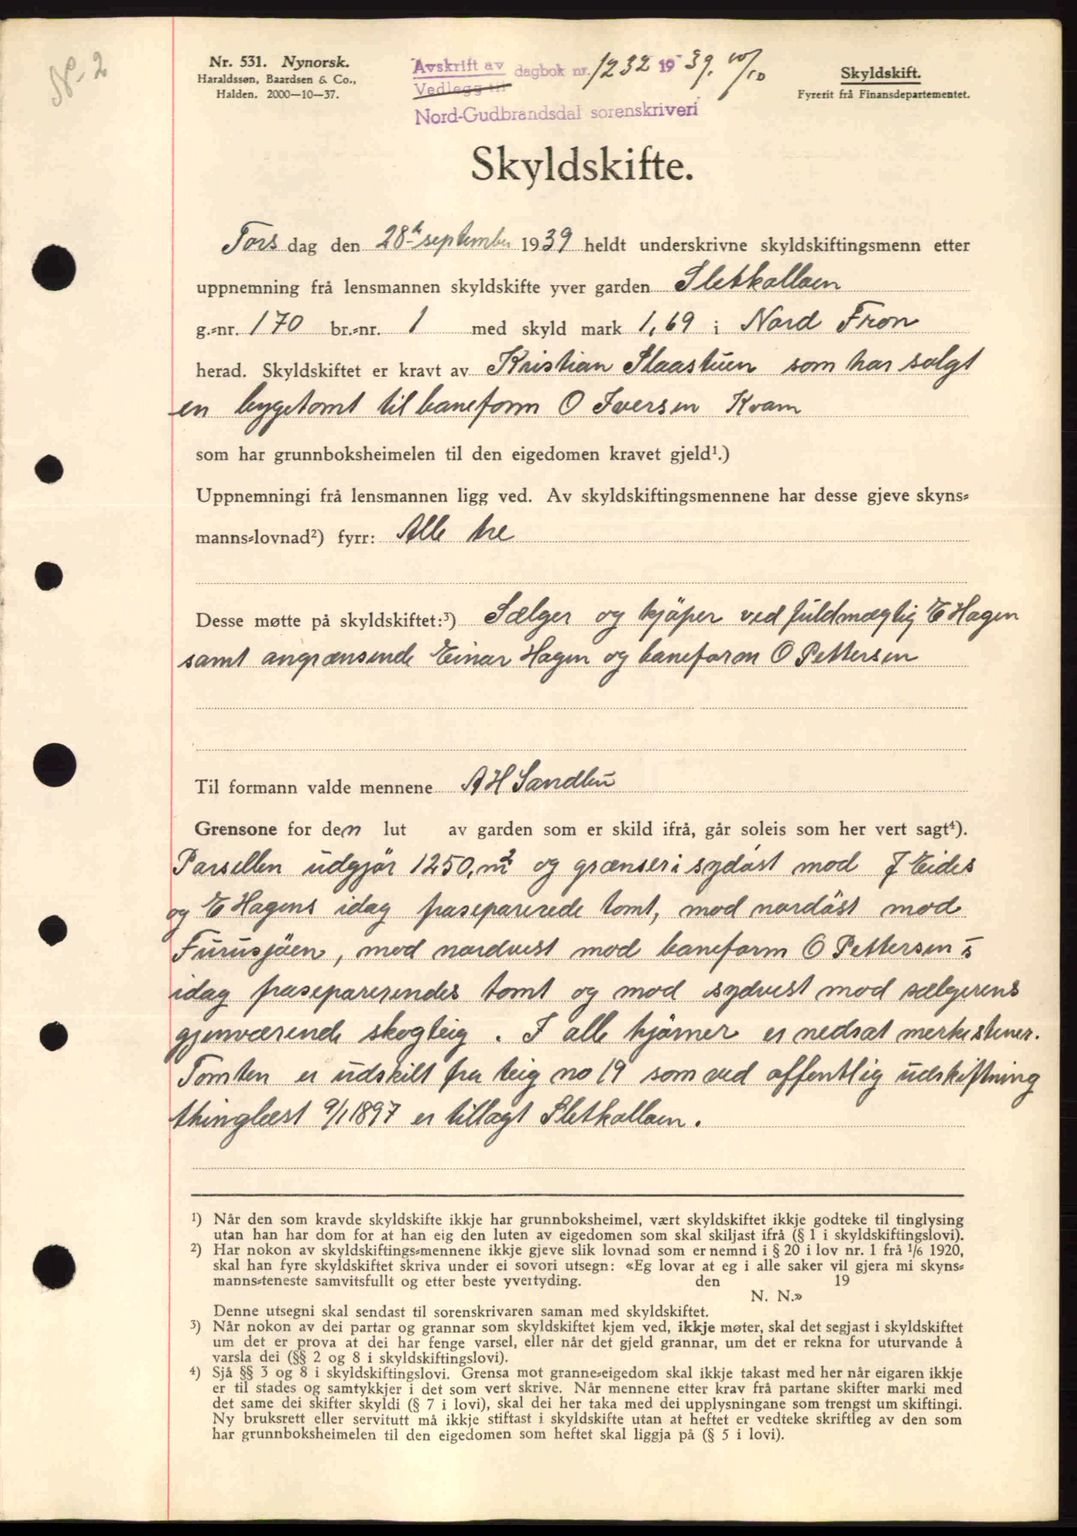 No 2
Nr. 531. Nynorsk.
Haraldssøn, Baardsen & Co.,
Halden. 2000—10—37.
Avskrift av dagbok nr. 1232 1939. 10/10
Vedlegg til
Nord-Gudbrandsdal sorenskriveri
Skyldskift.
Fyrerit frå Finansdepartementet.
Skyldskifte.
Torsdag den 28de september 1939 heldt underskrivne skyldskiftingsmenn etter
uppnemning frå lensmannen skyldskifte yver garden Sletkalløen
g.-nr. 170 br.-nr. 1 med skyld mark 1,69 i Nord Fron
herad. Skyldskiftet er kravt av Kristian Slaastuen som har solgt
en bygetomt til baneform O Iversen Kvam
som har grunnboksheimelen til den eigedomen kravet gjeld¹.)
Uppnemningi frå lensmannen ligg ved. Av skyldskiftingsmennene har desse gjeve skyns-
manns-lovnad²) fyrr: Alle tre
Desse møtte på skyldskiftet:³) Sælger og kjøper ved fuldmægtig E Hagen
samt angrænsende Einar Hagen og baneform O Pettersen
Til formann valde mennene A H Sandbu
Grensone for den lut av garden som er skild ifrå, går soleis som her vert sagt⁴).
Parsellen udgjør 1250,m² og grænser i sydøst mod J Eides
og E Hagens idag fraseparerede tomt, mod nordøst mod
Furusjøen, mod nordvest mod baneform O Pettersen's
idag fraseparerendes tomt og mod sydvest mod sælgerens
gjenværende skogteig. I alle hjørner er nedsat merkestener.
Tomten er udskilt fra teig no 19 som ved offentlig udskiftning
thinglæst 9/1 1897 er tillagt Sletkalløen.
¹) Når den som kravde skyldskifte ikkje har grunnboksheimel, vært skyldskiftet ikkje godteke til tinglysing
utan han har dom for at han eig den luten av eigedomen som skal skiljast ifrå (§ 1 i skyldskiftingslovi).
²) Har nokon av skyldskiftings-mennene ikkje gjeve slik lovnad som er nemnd i § 20 i lov nr. 1 frå 1/6 1920,
skal han fyre skyldskiftet skriva under ei sovori utsegn: «Eg lovar at eg i alle saker vil gjera mi skyns-
manns-teneste samvitsfullt og etter beste yvertyding. den 19
N. N.»
Denne utsegni skal sendast til sorenskrivaren saman med skyldskiftet.
³) Når nokon av dei partar og grannar som skyldskiftet kjem ved, ikkje møter, skal det segjast i skyldskiftet
um det er prova at dei har fenge varsel, eller når det gjeld grannar, um det er rekna for uturvande å
varsla dei (§§ 2 og 8 i skyldskiftingslovi).
⁴) Sjå §§ 3 og 8 i skyldskiftingslovi. Grensa mot granne-eigedom skal ikkje takast med her når eigaren ikkje
er til stades og samtykkjer i det som vert skrive. Når mennene etter krav frå partane skifter marki med
det same dei skifter skyldi (§ 7 i lovi), skal dei her taka med dei upplysningane som trengst um skiftingi.
Ny bruksrett eller servitutt må ikkje stiftast i skyldskifte utan at heftet er vedteke skriftleg av den som
har grunnboksheimelen til den eigedomen som heftet skal liggja på (§ 5 i lovi).